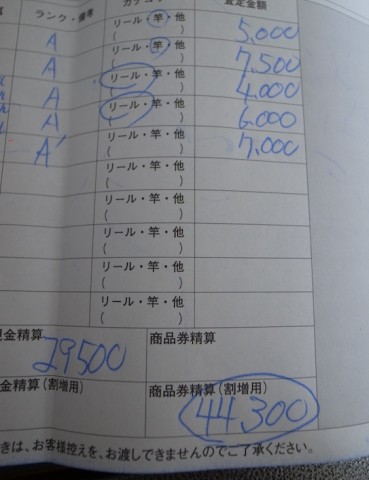 ランク・備考 カテゴリ 査定金額
A リール・竿・他 5,000
( )
A リール・竿・他 7,500
( )
A リール・竿・他 4,000
( )
A リール・竿・他 6,000
( )
A' リール・竿・他 7,000
( )
リール・竿・他
( )
リール・竿・他
( )
リール・竿・他
( )
リール・竿・他
( )
リール・竿・他
( )
金精算 商品券精算
29500
金精算(割増用) 商品券精算(割増用)
44,300
きは、お客様控えを、お渡しできませんのでご了承ください。